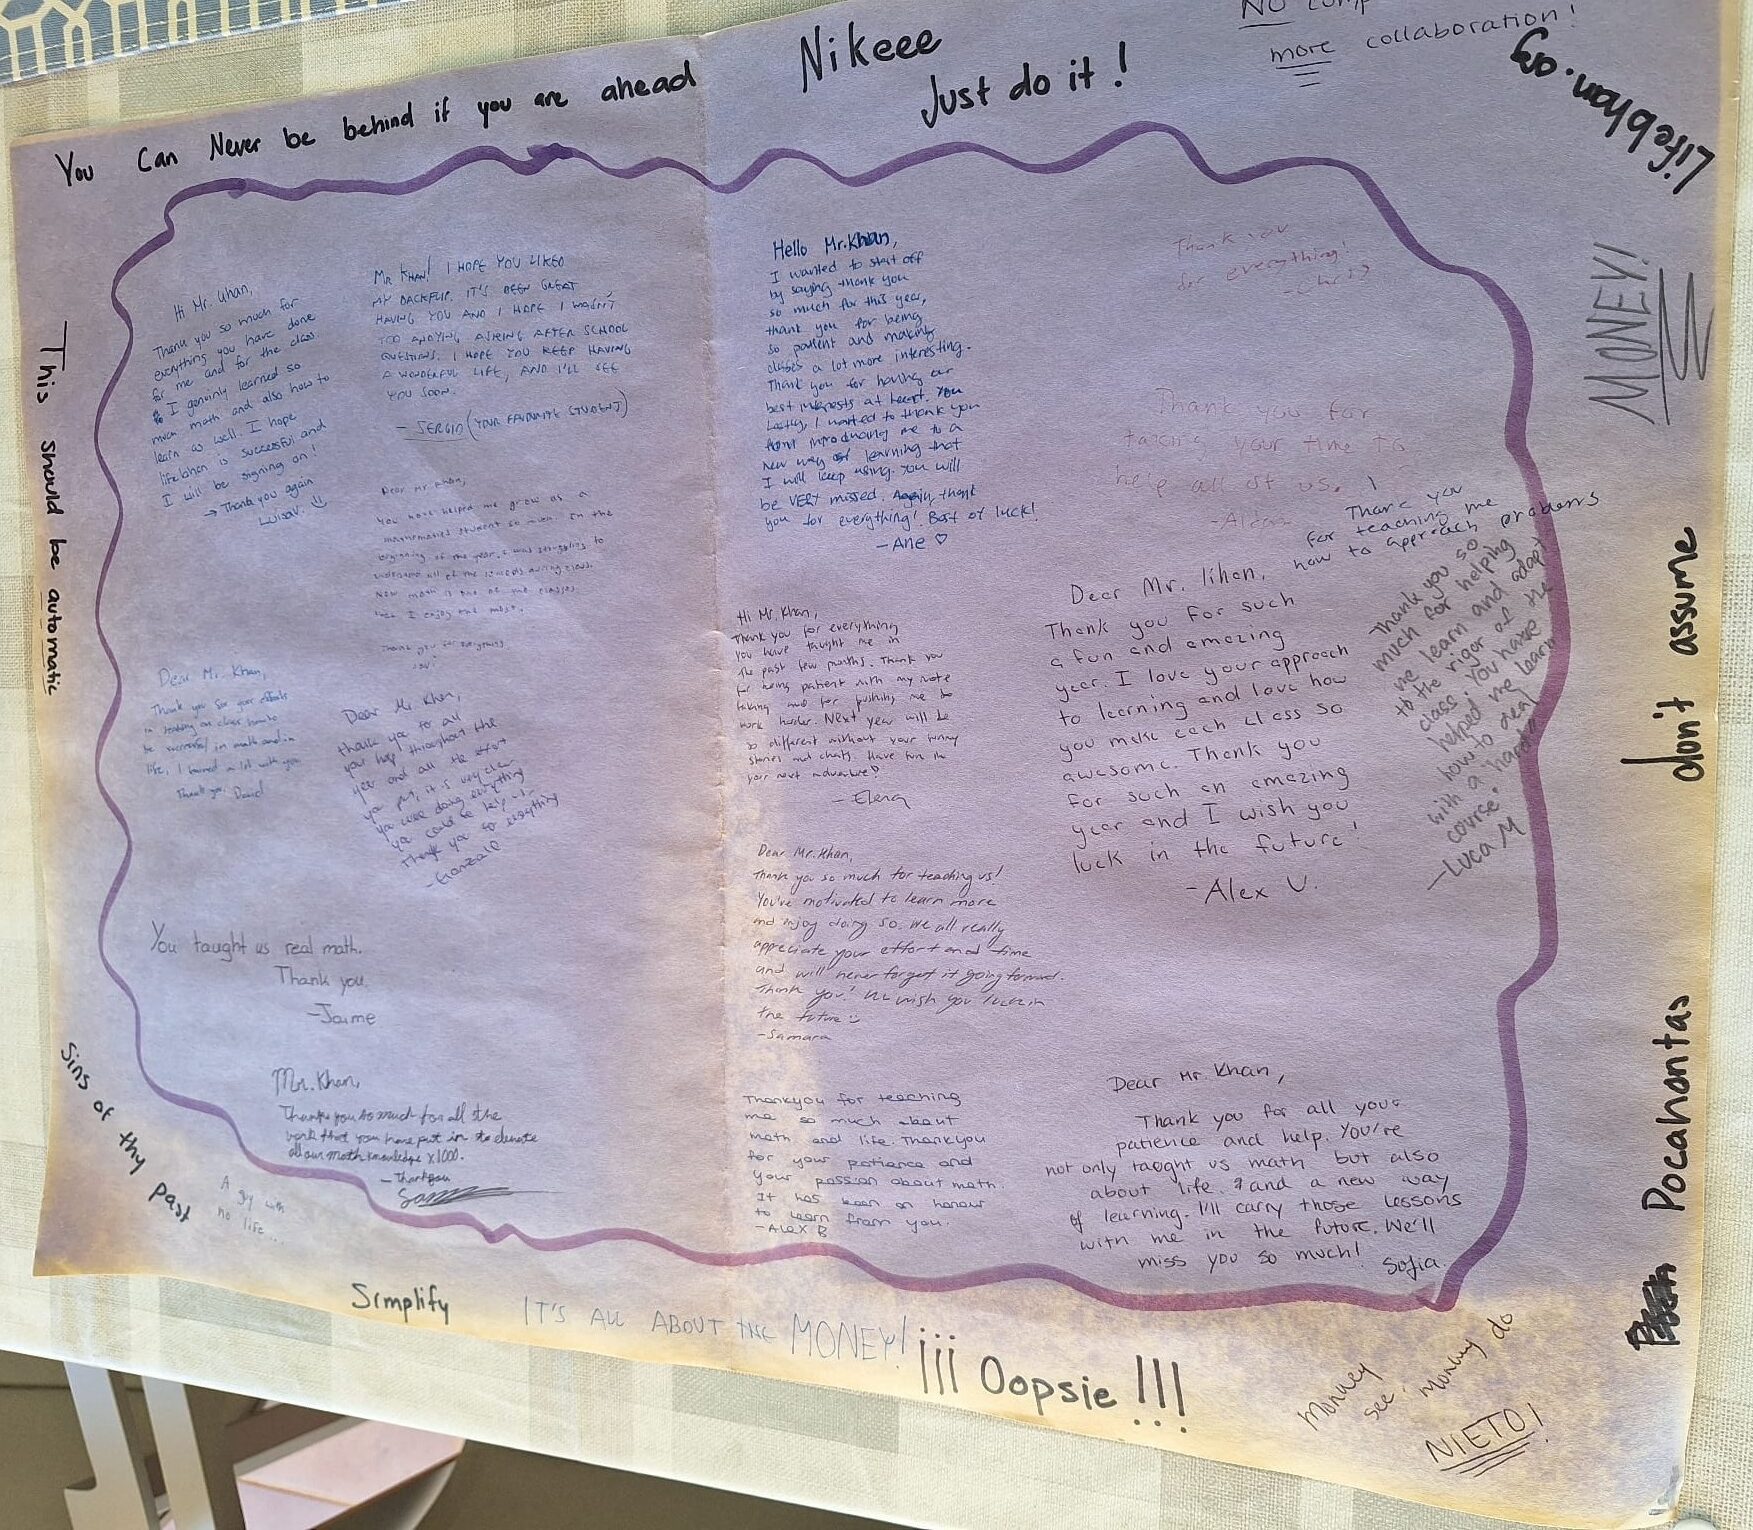 You Can Never be behind if you are ahead
Nikeee
Just do it!
NO
more collaboration!
Lifebhan.org
MONEY!
This should be automatic
Hi Mr. Uhan,
Thank you so much for
everything you have done
for me and for the class
I genuinly learned so
much math and also how to
learn as well. I hope
lifebhen is successful and
I will be signing on!
→ Thank you again
Luisa
MR KHAN! I HOPE YOU LIKED
MY BACKFLIP. IT'S BEEN GREAT
HAVING YOU AND I HOPE I WASN'T
TOO ANOYING ASKING AFTER SCHOOL
QUESTIONS. I HOPE YOU KEEP HAVING
A WONDERFUL LIFE, AND I'LL SEE
YOU SOON.
- SERGIO (YOUR FAVOURITE STUDENT)
Dear Mr Khan,
You have helped me grow as a
mathematics student so much. In the
beginning of the year, I was struggling to
understand all of the concepts during class.
Now math is one of the classes
that I enjoy the most.
Thank you for everything
Dear Mr. Khan,
Thank you for your efforts
in teaching our class how to
be successful in math and in
life, I learned a lot with you
Thank you, David
Dear Mr Khan,
thank you for all
your help throughout the
year and all the effort
you put, it is very clear
you were doing everything
you could to help us.
Thank you for everything
- Gonzalo
You taught us real math.
Thank you.
-Jaime
Mr. Khan,
Thank you so much for all the
work that you have put in to elevate
all our math knowledge x1000.
- Thank you
Hello Mr. Khan,
I wanted to start off
by saying thank you
so much for this year,
thank you for being
so patient and making
classes a lot more interesting.
Thank you for having our
best interests at heart. You
Lastly, I wanted to thank you
introducing me to a
new way of learning that
I will keep using. You will
be VERY missed. Again, thank
you for everything! Best of luck!
- Ane ♡
Hi Mr. Khan,
Thank you for everything
you have taught me in
the past few months. Thank you
for being patient with my note
taking and for pushing me to
work harder. Next year will be
so different without your funny
stories and chats. Have fun in
your next adventure!
- Elena
Dear Mr. Khan,
Thank you so much for teaching us!
You've motivated to learn more
and enjoy doing so. We all really
appreciate your effort and time
and will never forget it going forward.
Thank you! We wish you luck in
the future
-Samara
Thankyou for teaching
me so much about
math and life. Thankyou
for your patience and
your passion about math.
It has been an honour
to learn from you.
-ALEX B
Thank you
for everything!
- Chris
Thank you for
taking your time to
help all of us.
Thank you
for teaching me
how to approach problems
Dear Mr. Iihan,
Thank you for such
a fun and amazing
year. I love your approach
to learning and love how
you make each class so
awesome. Thank you
for such an amazing
year and I wish you
luck in the future!
- Alex V.
Thank you so
much for helping
me learn and adapt
to the rigor of the
class. You have
helped me learn
how to deal
with a harder
course.
-Luca M
Dear Mr. Khan,
Thank you for all your
patience and help. You're
not only taught us math but also
about life. and a new way
of learning. I'll carry those lessons
with me in the future. We'll
miss you so much!
Sofia.
don't assume
Pocahontas
Sins of thy past
A guy with
no life...
Simplify
IT'S ALL ABOUT THE MONEY!
¡¡¡ Oopsie !!!
Monkey see, Monkey do
NIETO!